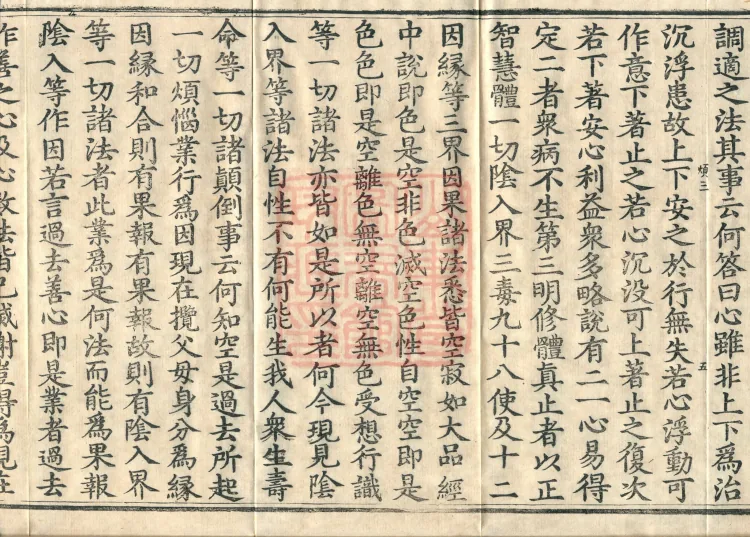 調適之法其事云何答曰心雖非上下爲治
煩三
五
沉浮患故上下安之於行無失若心浮動可
作意下著止之若心沉没可上著止之復次
若下著安心利益衆多略說有二一心易得
定二者衆病不生第三明修體真止者以正
智慧體一切陰入界三毒九十八使及十二
因緣等三界因果諸法悉皆空寂如大品經
中說即色是空非色滅空色性自空空即是
色色即是空離色無空離空無色受想行識
等一切諸法亦皆如是所以者何今現見陰
入界等諸法自性不有何能生我人衆生壽
命等一切諸顛倒事云何知空是過去所起
一切煩惱業行爲因現在攬父母身分爲緣
因緣和合則有果報有果報故則有陰入界
等一切諸法者此業爲是何法而能爲果報
陰入等作因若言過去善心即是業者過去
作善之心及心數法皆已滅謝豈得爲現在